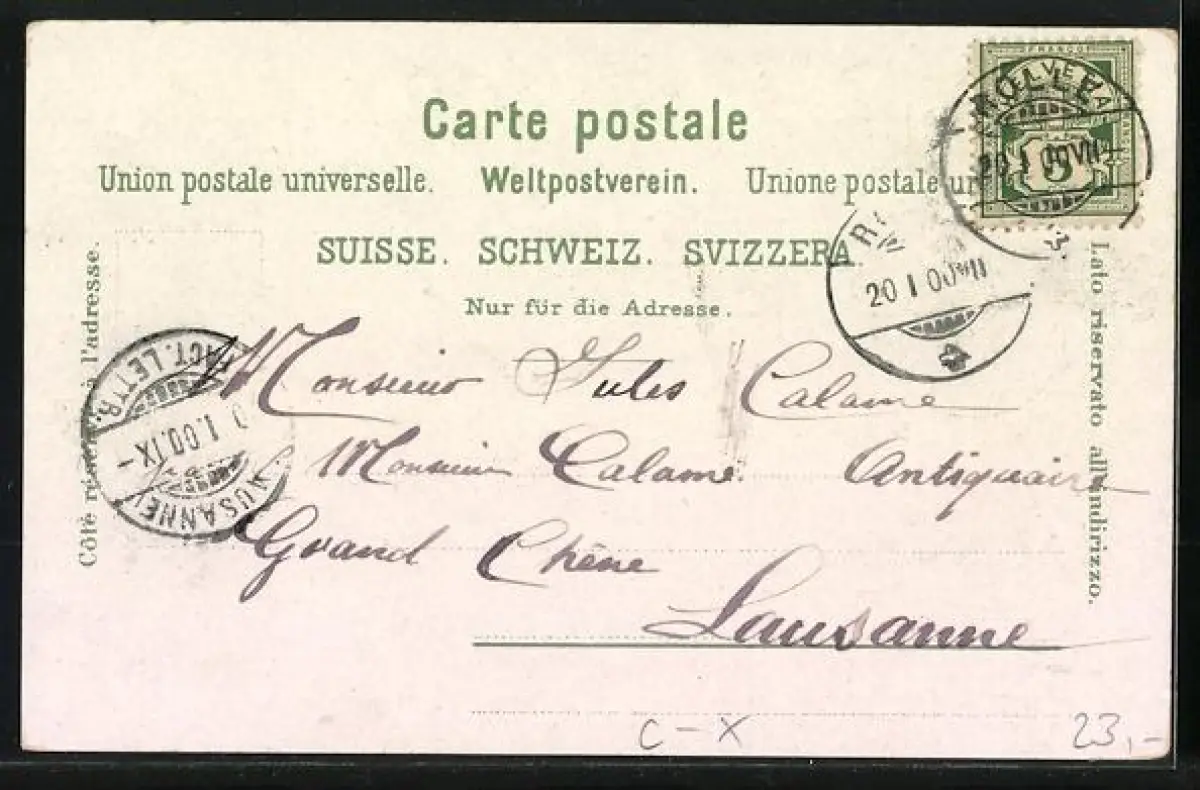 Carte postale
Union postale universelle. Weltpostverein. Unione postale un
SUISSE. SCHWEIZ. SVIZZERA.
Nur für die Adresse.
Côté ré à l'adresse.
Lato riservato all'indirizzo.
FRANCO
HELVETIA
5
ROLLE
20 I 00 VII
R
20 I 00 VII
FACT. LETTR.
I.00.IX-
LAUSANNE
Monsieur Jules Calame
Monsieur Calame. Antiquaire
Grand Chêne
Lausanne
C-X
23,-